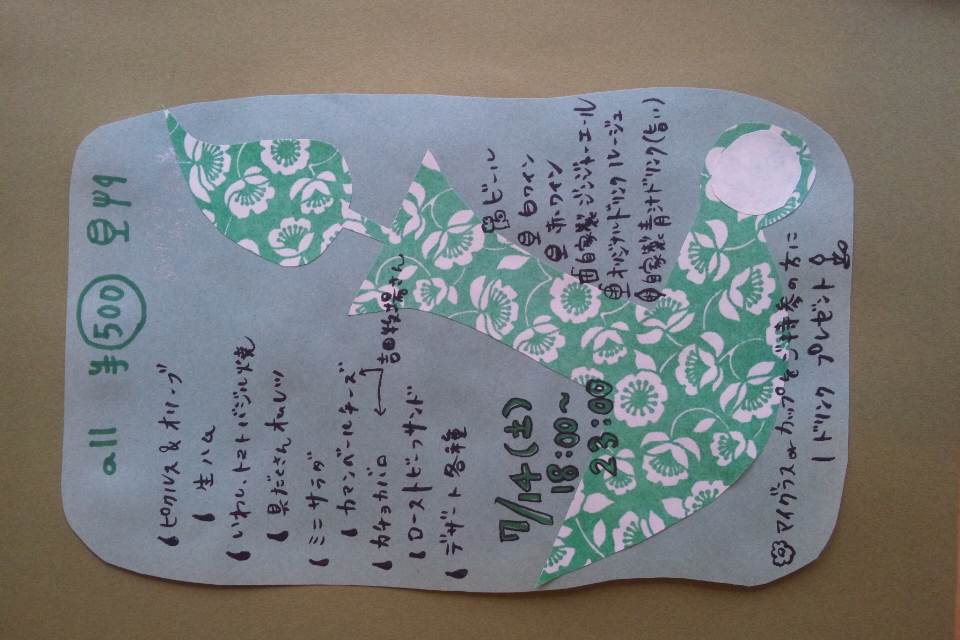 all ¥500
ピクルス&オリーブ
生ハム
いわし、トマトバジル焼
具だくさんオムレツ
ミニサラダ
カマンベールチーズ
カチョカバロ
吉田牧場さん
ローストビーフサンド
デザート各種
7/14(土)
18:00~
23:00
ビール
白ワイン
赤ワイン
自家製ジンジャーエール
オリジナルドリンクルージュ
自家製青汁ドリンク(旨い)
マイグラスorカップをご持参の方に
1ドリンク プレゼント